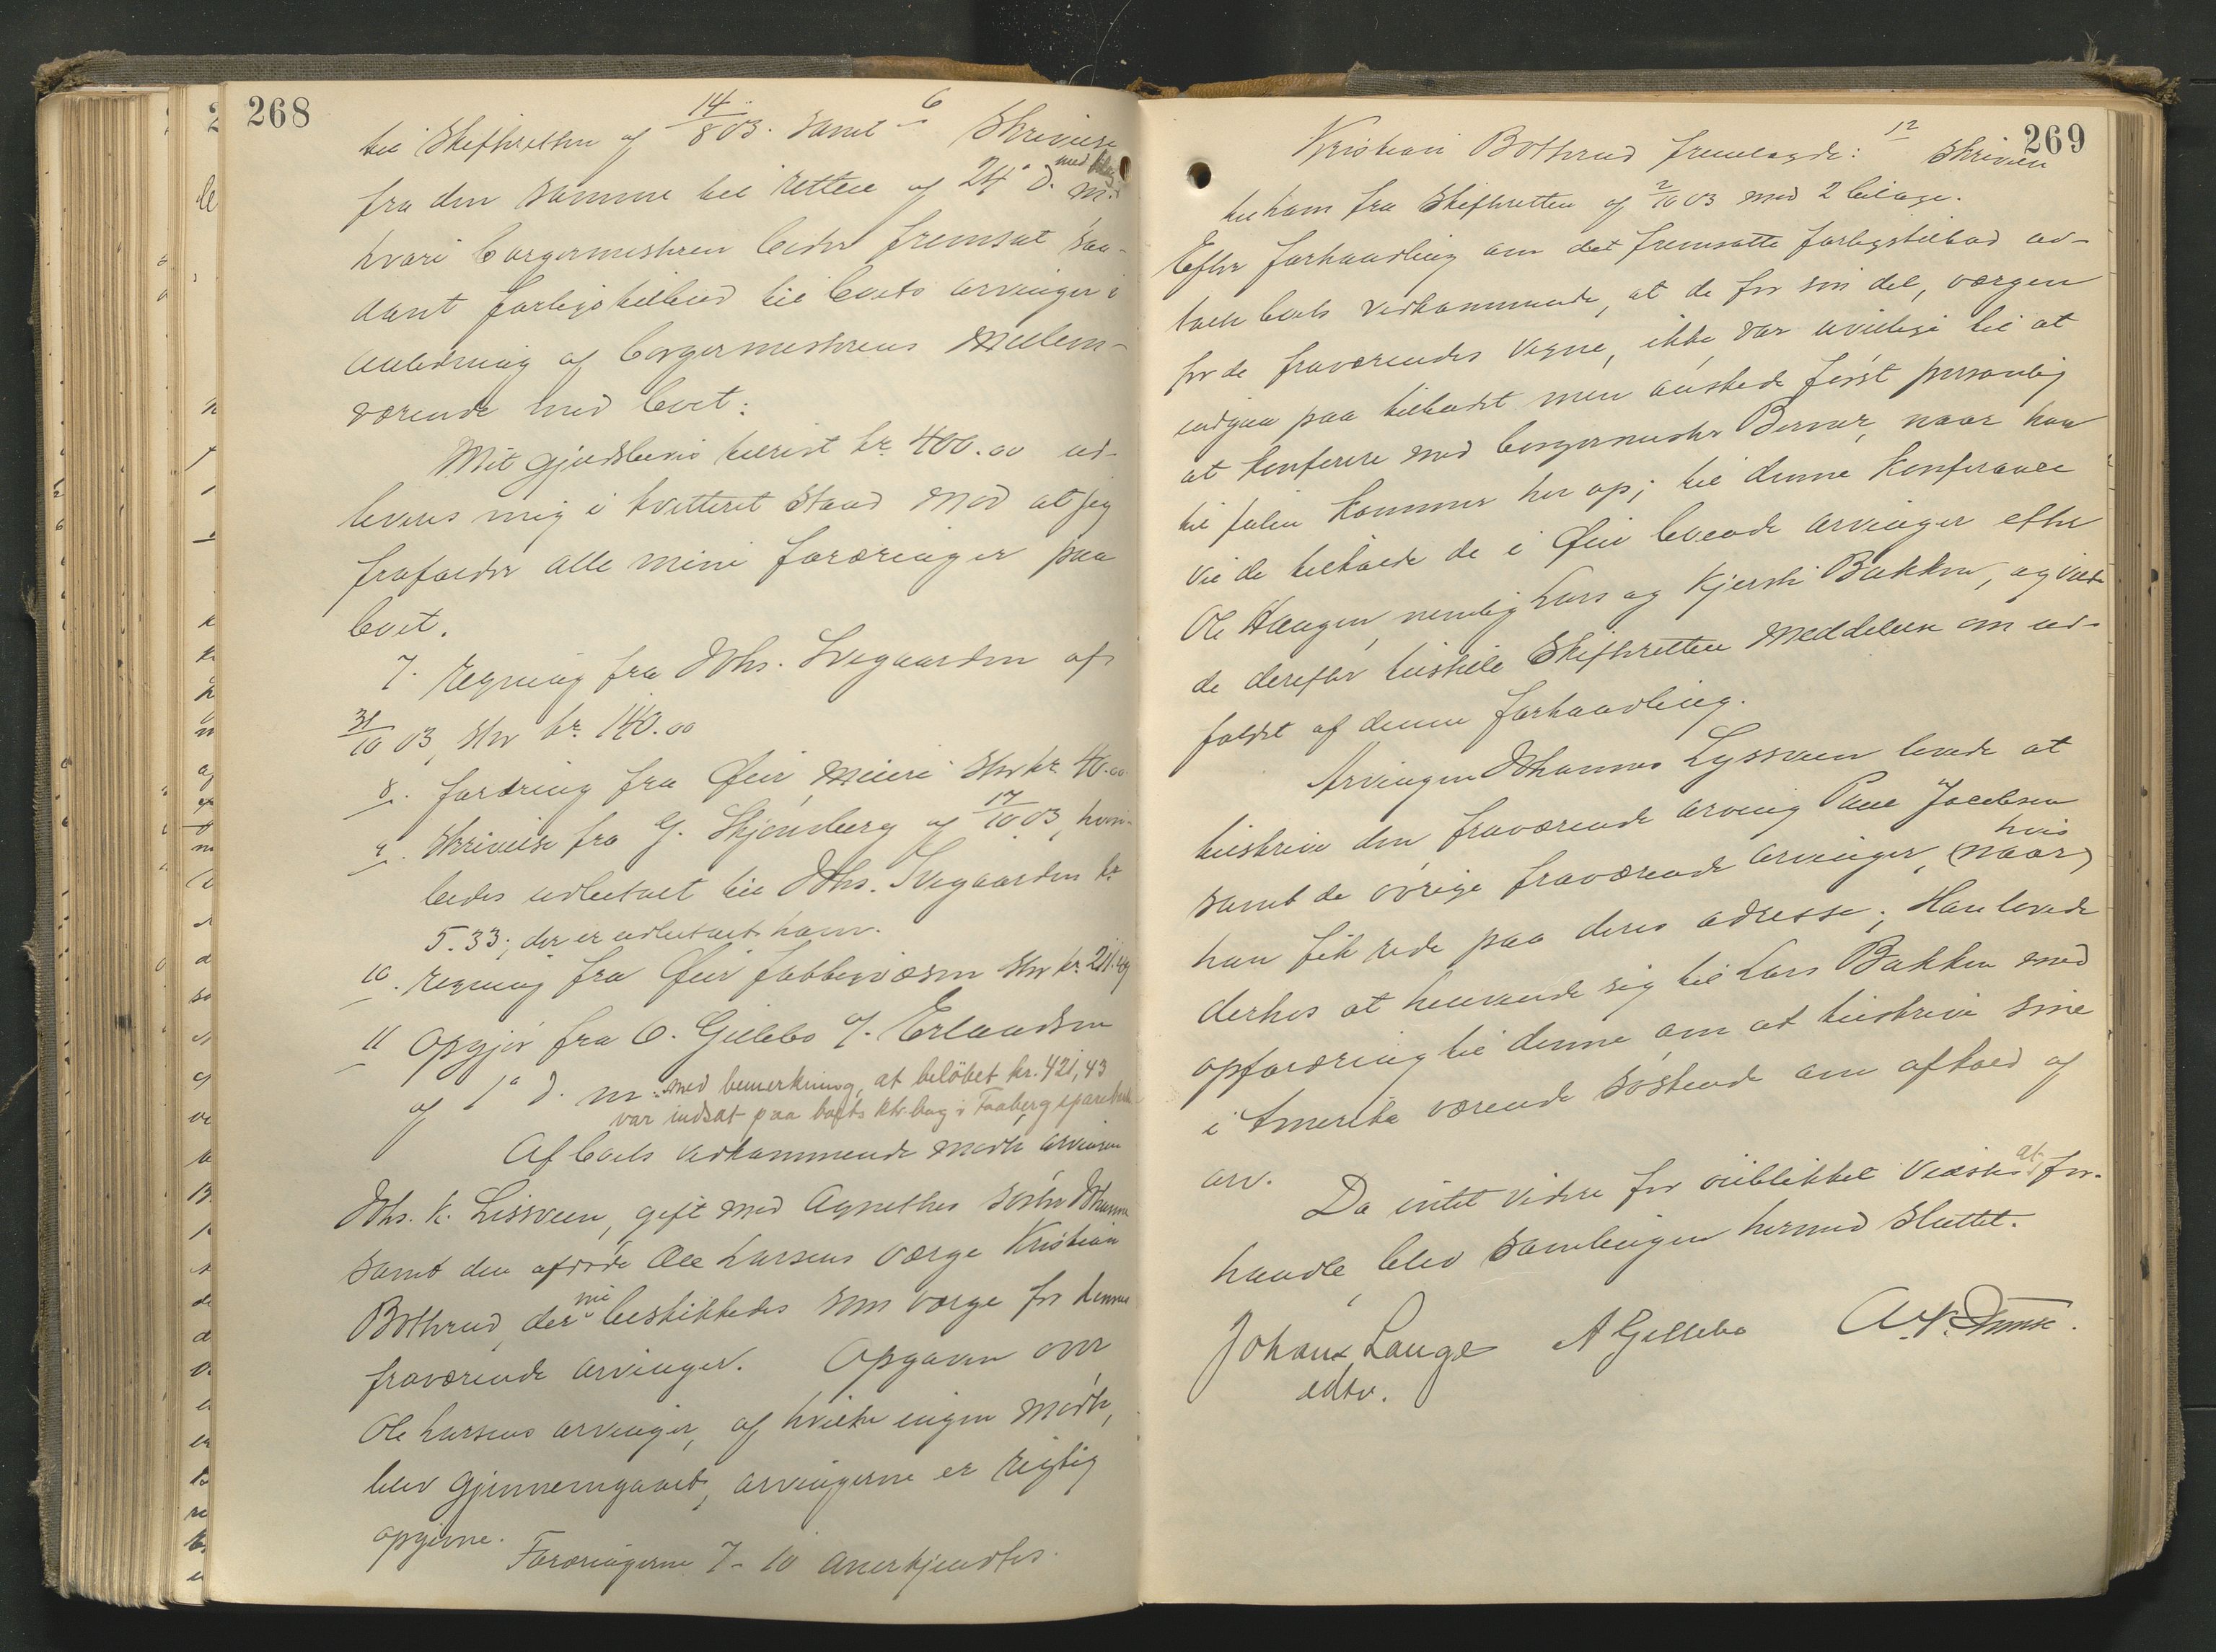 268
til Skifteretten af 14/8 03. samt 6 Skrivelse
fra den samme til retten af 24' d. m. med bilag
hvori borgermesteren beder fremsat saa-
dant forligstilbud til boets arvinger i
anledning af borgermesterens Mellem-
værende med boet:
Mit gjældsbevis til rest kr. 400.00 ud-
leveres mig i kvitteret Stand mod at jeg
frafalder alle mine fordringer paa
boet.
7. regning fra Johs. Svegaarden af
31/10 03, stor kr. 140.00
8. fordring fra Øier Meieri stor kr. 40.00
9. skrivelse fra G. Skjønsberg af 17/10 03, hvori
bedes udbetalt til Johs. Svegaarden kr.
5.33; der er udbetalt ham.
10. regning fra Øier fattigvæsen stor kr. 211.49
11 Opgjør fra O. Gillebo & Erlandsen
af 1' d. m. med bemerkning, at beløbet kr. 421,43
var indsat paa boets ktr.bog i Faaberg sparebank
Af boets vedkommende mødte arvingen
Johs. K. Lissveen, gift med Agnethes søster Johanne
samt den afdøde Ole Larsens værge Kristian
Bothrud, der nu beskikkedes som værge for hennes
fraværende arvinger. Opgaven over
Ole Larsens arvinger, af hvilke ingen mødte,
blev gjennemgaaet, arvingerne er rigtig
opgivne.
Fordringerne 7-10 anerkjendtes.
269
Kristian Bothrud fremlagde: 12 Skrivelse
til ham fra Skifteretten af 2/10 03 med 2 bilage.
Efter forhandling om det fremsatte forligstilbud ud-
talte boets vedkommende, at de for sin del, værgen
for de fraværendes vegne, ikke var uvillige til at
indgaa paa tilbudet men ønskede først personlig
at konferere med borgermester Berner, naar han
til julen kommer her op; til denne konferance
vil de tilkalde de i Øier boende arvinger efter
Ole Haugen, nemlig Lars og Kjersti Bakken, og vilde
de derefter tilstille Skifteretten Meddelelse om ud-
faldet af denne forhandling.
Arvingen Johannes Lyssveen lovede at
tilskrive den fraværende arving Pauline Jacobsen
samt de øvrige fraværende arvinger, (naar) hvis
han fik rede paa deres adresse; Han lovede
derhos at henvende sig til Lars Bakken med
opfordring til denne om at tilskrive sine
i Amerika værende søskende om afkald af
arv.
Da intet videre for øieblikket vidstes at for-
handle, blev samlingen hermed sluttet.
Johan Lange A Gillebo
edsv.